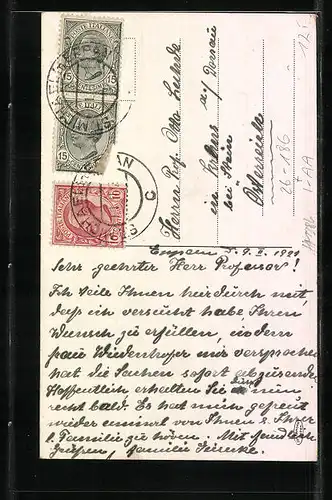 POSTE ITALIANE
15
15
POSTE ITALIANE
15
10
10
ST. MICHELE-EPPAN
C
Herrn Prof. Otto
in
bei Stein a/ Donau
Österreich
Eppan, 9. II. 1921
Sehr geehrter Herr Professor!
Ich teile Ihnen hierdurch mit
daß ich versucht habe, Ihren
Wunsch zu erfüllen, indem
Frau Wiedenhofer mir versprochen
hat die Sachen sofort abzusenden
Hoffentlich erhalten Sie nun
recht bald. Es hat mich gefreut
wieder einmal von Ihnen & Ihrer
l. Familie zu hören. Mit freundlich
Grüßen, Familie
26-186
I-AA